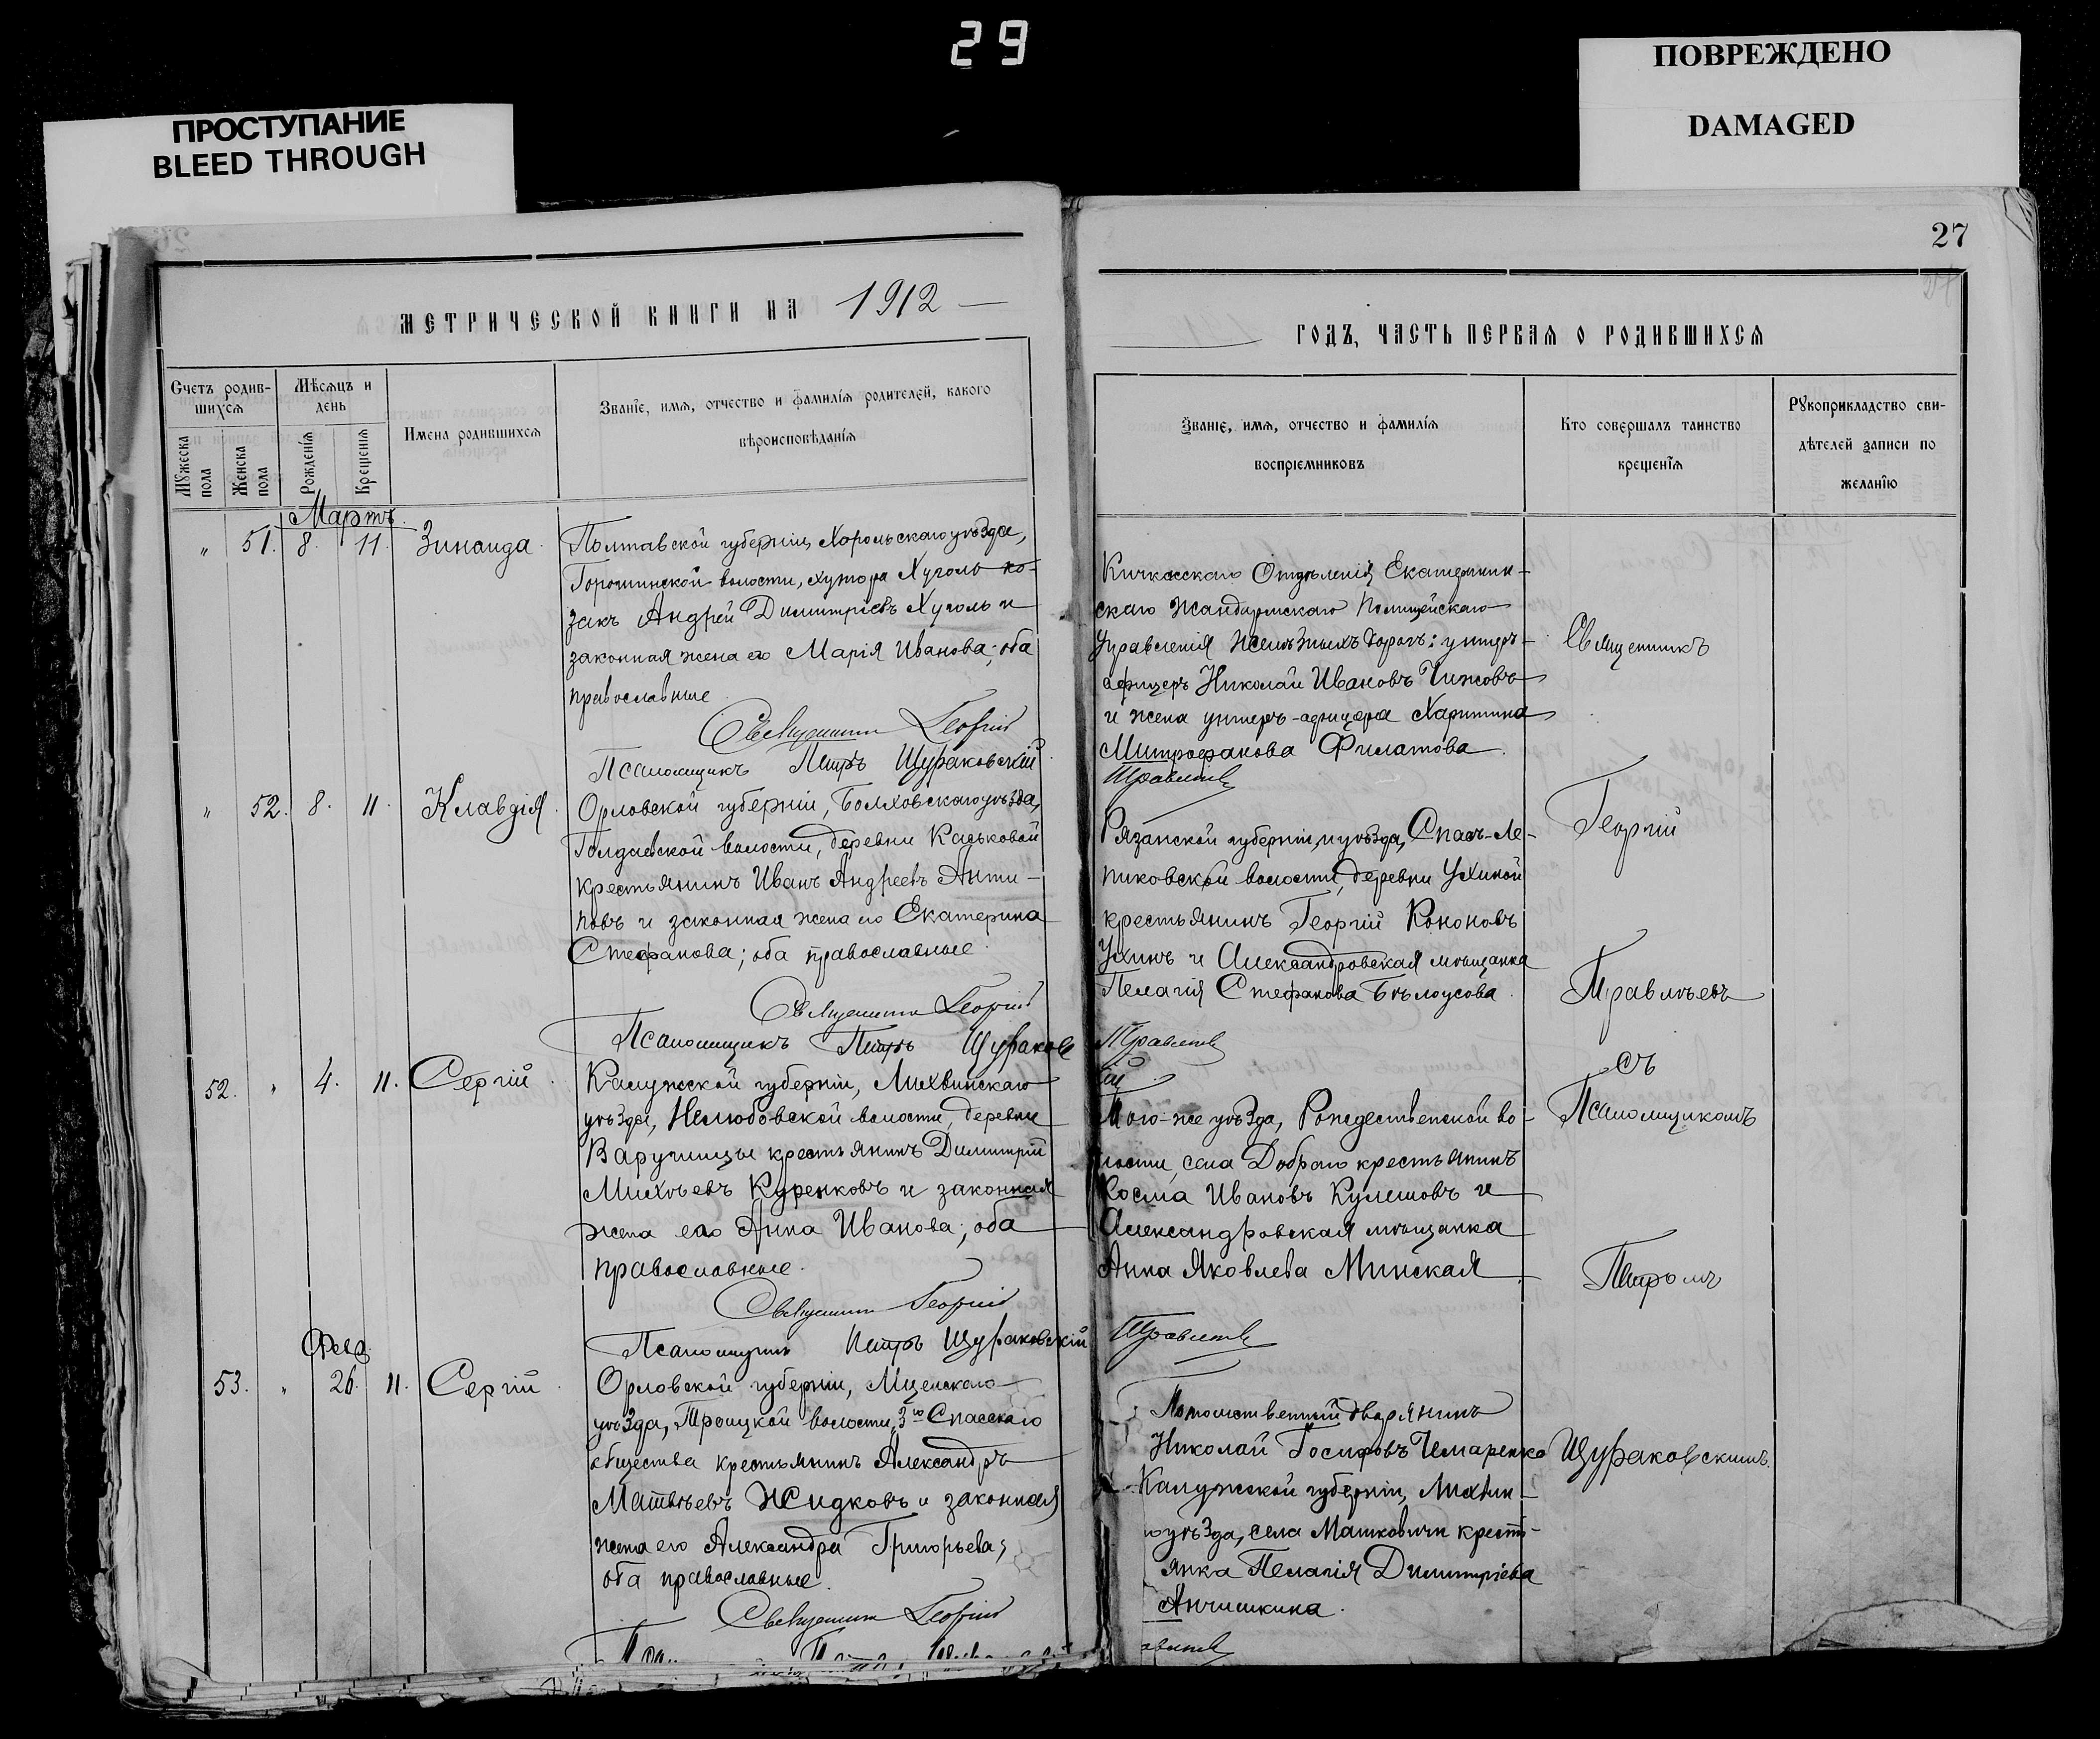 29
ПРОСТУПАНИЕ
BLEED THROUGH
ПОВРЕЖДЕНО
DAMAGED
27
МЕТРИЧЕСКОЙ КНИГИ НА 1912
Счетъ родив-
шихся
Мѣсяцъ и
день
Имена родившихся
Званіе, имя, отчество и фамилія родителей, какого
вѣроисповѣданія
Мужеска
пола
Женска
пола
Рожденія
Крещенія
Мартъ.
" 51. 8. 11. Зинаида. Полтавской губерніи, Хорольскаго уѣзда,
Горошинской волости, хутора Хуголь ко-
закъ Андрей Димитріевъ Хуголь и
законная жена его Марія Иванова; оба
православные.
Священникъ Георгій
Псаломщикъ Петръ Щураковскій.
" 52. 8. 11. Клавдія. Орловской губерніи, Болховскаго уѣзда,
волости, деревни Каськовой
крестьянинъ Иванъ Андреевъ Анти-
повъ и законная жена его Екатерина
Стефанова; оба православные.
Священникъ Георгій
Псаломщикъ Петръ Щураков
52. " 4. 11. Сергій. Калужской губерніи, Лихвинскаго
уѣзда, Нелюбовской волости, деревни
Варушицы крестьянинъ Димитрій
Михѣевъ Куренковъ и законная
жена его Анна Иванова; оба
православные.
Священникъ Георгій
Псаломщикъ Петръ Щураковскій
Февр.
53. " 26. 11. Сергій. Орловской губерніи, Мценскаго
уѣзда, Троицкой волости, 3го Спасскаго
общества крестьянинъ Александръ
Матвѣевъ Жидковъ и законная
жена его Александра Григорьева;
оба православные.
Священникъ Георгій
ГОДЪ, ЧАСТЬ ПЕРВАЯ О РОДИВШИХСЯ
Званіе, имя, отчество и фамилія
воспріемниковъ
Кто совершалъ таинство
крещенія
Рукоприкладство сви-
дѣтелей записи по
желанію
Кичкасскаго Отдѣленія Екатеринин-
скаго Жандармскаго Полицейскаго
Управленія Желѣзныхъ дорогъ: унтеръ-
офицеръ Николай Ивановъ Чижовъ
и жена унтеръ-офицера Харитина
Митрофанова Филатова.
Правилѣв
Рязанской губерніи, и уѣзда, Спасъ-Ле-
пиковской волости, деревни Ухиной
крестьянинъ Георгій Кононовъ
Ухинъ и Александровская мѣщанка
Пелагія Стефанова Бѣлоусова.
ій
Того-же уѣзда, Рождественской во-
лости, села Добраго крестьянинъ
Косма Ивановъ Кулешовъ и
Александровская мѣщанка
Анна Яковлева Минская
Потомственный дворянинъ
Николай Іосифовъ
Калужской губерніи, Лихвин-
уѣзда, села Машковичи кресть-
янка Пелагія Димитріева
Анчишкина.
Священникъ
Георгій
съ
Псаломщикомъ
Петромъ
Щураковскимъ.